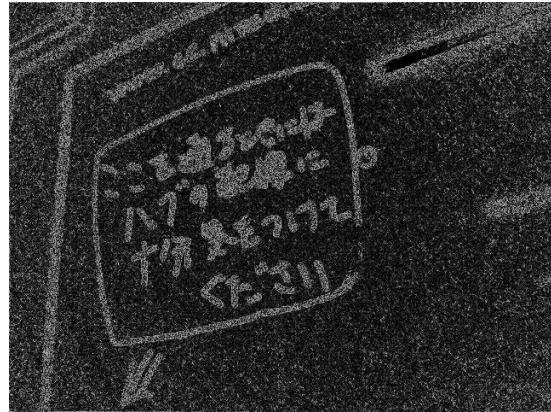 ここを通るときは
ハブや配線に
十分気をつけて
ください